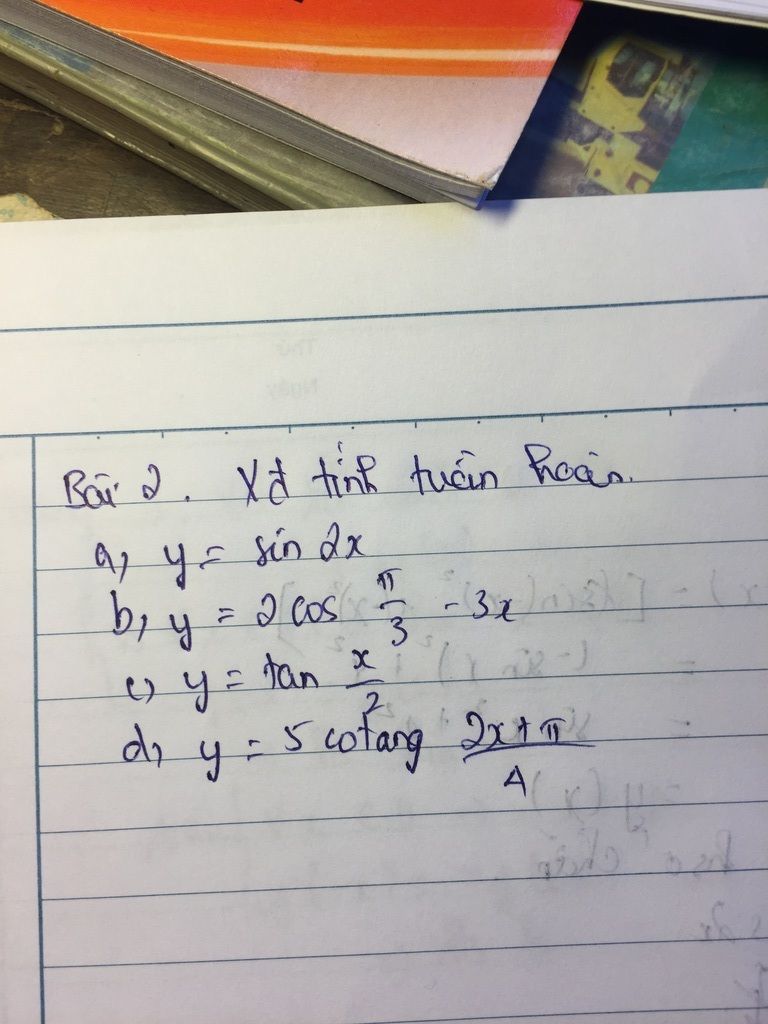 Thứ
Ngày
Bài 2. Xđ tính tuần hoàn.
a, y = sin 2x
b, y = 2 cos π/3 - 3x
c, y = tan x/2
d, y = 5 cotang (2x + π)/4